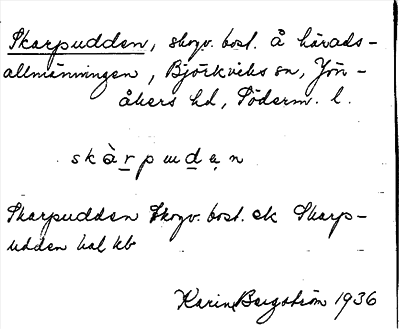 Skarpudden, skogv. bost. å härads-
allmänningen, Björkviks sn, Jön-
åkers hd, Söderm. l.
skàr̲pud̲ạn
Skarpudden Skogv. bost. ek Skarp-
udden hal kb
Karin Bergström 1936